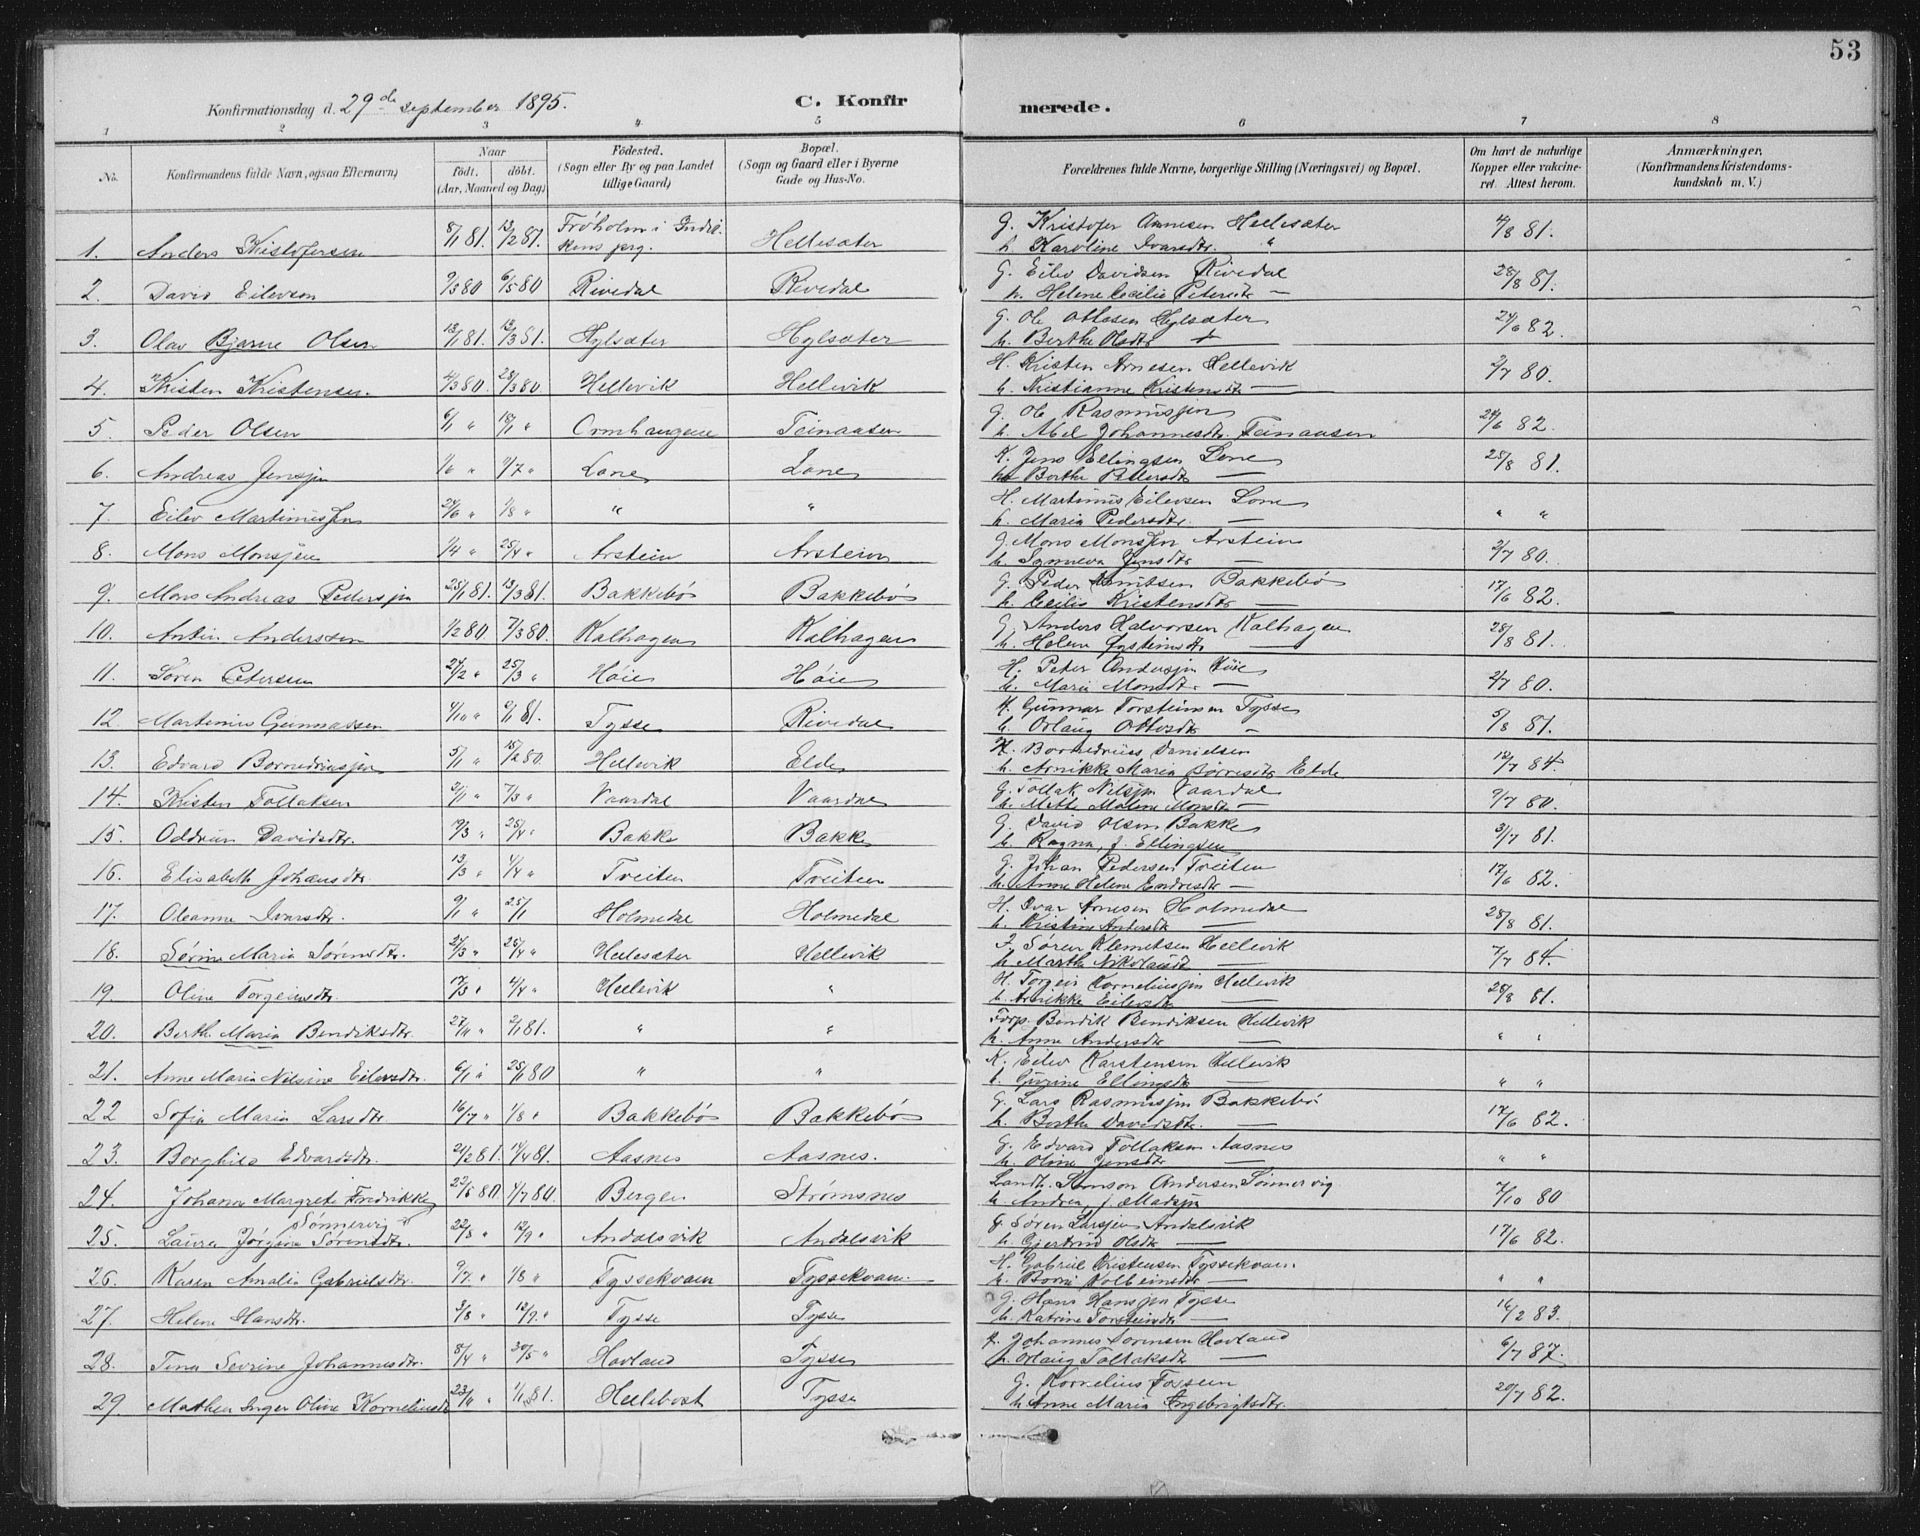 53
Konfirmationsdag d. 29de september 1895.
C. Konfirmerede.
1 2 3 4 5 6 7 8
No.
Konfirmandens fulde Navn, ogsaa Efternavn)
Naar
født. døbt.
(Aar, Maaned og Dag)
Fødested.
(Sogn eller By og paa Landet
tillige Gaard)
Bopæl.
(Sogn og Gaard eller i Byerne
Gade og Hus-No.
Forældrenes fulde Navne, borgerlige Stilling (Næringsvei) og Bopæl.
Om havt de naturlige
Kopper eller vakcine-
ret. Attest herom.
Anmærkninger,
(Konfirmandens Kristendoms-
kundskab m. V.)
1. Anders Kristofersen 8/1 81. 13/2 81. Frøholm i Hellesæter G. Kristofer Hellesæter 81.
h. Karoline Ivarsdtr. "
2. David Eilevsen 9/3 80 6/5 80 Rivedal Rivedal G. Eilev Davidsen Rivedal 28/8 81.
h. Helene Cecilie Petersdtr —
3. Olav Bjarne Olsen 13/1 81. 13/3 81. Hylsæter Hylsæter G. Ole Ottosen Hylsæter 24/6 82
h. Berthe Olsdtr
4. Kristen Kristensen. 4/3 80. 28/3 80 Hellevik Hellevik H. Kristen Arnesen Hellevik 2/7 80.
h. Kristianne Kristensdtr —
5. Peder Olsen 6/1 " 18/1 " Ormhaugene Teinaasen G. Ole Rasmussen 24/6 82.
h. Abel Johannesdtr. Teinaasen
6. Andreas Jenssen 1/6 " 9/7 " Lone Lone K. Jens Ellingsen Lone 25/8 81.
h. Berthe Pedersdtr —
7. Eilev Martinussen 24/6 " 1/8 " " " H. Martinus Eilevsen Lone " "
h. Maria Pedersdtr. —
8. Mons Monssen 1/4 " 25/4 " Arstein Arstein G. Mons Monssen Arstein 2/7 80.
h. Synneva Jensdtr —
9. Mons Andreas Pederssen 25/1 81. 13/3 81. Bakkebø Bakkebø G. Peder Knutsen Bakkebø 17/6 82.
h. Cecilie Kristensdtr —
10. Anderssen 1/2 80. 7/3 80. Kalhagen Kalhagen G. Anders Halvorsen Kalhagen 28/8 81.
h. Helene Øysteinsdtr —
11. Søren Petersen 24/2 " 25/3 " Høie Høie H. Peter Anderssen Høie 2/7 80.
h. Maria Monsdtr —
12. Martinus Gunnarsen 4/10 " 9/1 81. Tysse Rivedal K. Gunnar Torsteinsen Tysse 5/8 81.
h. Orlaug Ottosdtr —
13. Edvard 5/1 " 15/2 80. Hellevik Elde Danielsen 12/7 84.
h. Arnikke Maria Børresdtr Elde
14. Kristen Tollaksen 3/1 " 7/3 " Vaardal Vaardal G. Tollak Nilssen Vaardal 9/7 80.
h. Mette Malene Monsdtr —
15. Oddrun Davidsdtr. 19/3 " 25/4 " Bakke Bakke G. David Olsen Bakke 3/7 81.
h. Ragna, f. Ellingsen
16. Elisabeth Johansdtr 13/3 " 4/4 " Tveiten Tveiten G. Johan Pedersen Tveiten 17/6 82.
h. Anne Helene Endresdtr —
17. Oleanne Ivarsdtr. 9/1 " 25/1 Holmedal Holmedal H. Ivar Arnesen Holmedal 28/8 81.
h. Kristine Andersdtr —
18. Sørine Maria Sørensdtr. 27/3 " 25/4 " Hellesæter Hellevik F. Søren Klemetsen Hellevik 7/7 84.
h. Marthe Nikolaisdtr —
19. Oline Torgeirsdtr. 17/3 " 4/4 " Hellevik " H. Torgeir Korneliussen Hellevik 28/8 81.
h. Arnikke Eilevsdtr —
20. Berth. Maria Bendiksdtr. 27/11 " 2/1 81. " " Forp. Bendik Bendiksen Hellevik " "
h. Anne Andersdtr —
21. Anne Maria Nilsine Eilevsdtr. 6/1 " 25/1 80 " " K. Eilev Karstensen Hellevik " "
h. Gurine Ellingsdtr —
22 Sofia Maria Larsdtr. 16/7 " 1/8 " Bakkebø Bakkebø G. Lars Rasmussen Bakkebø 17/6 82.
h. Berthe Davidsdtr. —
23. Borghild Edvardsdtr. 21/2 81. 14/4 81. Aasnes Aasnes. G. Edvard Tollaksen Aasnes " "
h. Oline Jensdtr —
24. Johanne Margrete Fredrikke 80. 4/7 80. Bergen Strømsnes Landh. Samson Andersen Sønnervig 7/10 80
Sønnervig h. Andrea f. Madsen
25. Laura Jørgine Sørensdtr. 22/8 " 12/9 " Andalsvik Andalsvik G. Søren Larssen Andalsvik 17/6 82.
h. Gjertrud Olsdtr —
26. Karen Amalia Gabrielsdtr. 9/7 " 1/8 " Tyssekvam Tyssekvam. H. Gabriel Kristensen Tyssekvam. " "
h. Kolbeinsdtr —
27. Helene Hansdtr. 3/8 " 12/9 " Tysse Tysse G. Hans Hanssen Tysse 16/2 83.
h. Katrine Torsteinsdtr —
28. Tina Sevrine Johannesdtr. 8/4 " 30/5 " Hovland Tysse Johannes Sørensen Hovland 6/7 87.
h. Orlaug Tollaksdtr —
29. Mathea Inger Olive Kornelius 23/11 " 1/1 81. Hellebost Tysse G. Kornelius Fossen 20/7 82.
h. Anne Maria Engebrigtsdtr.